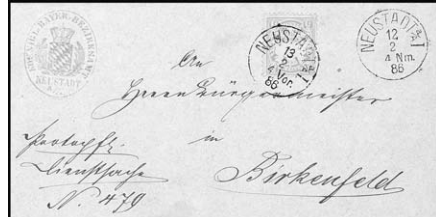 KÖNIGL. BAYER. BEZIRKSAMT
NEUSTADT
NEUSTADT a/A I
13
2
Vor.
86
NEUSTADT a/A I
12
2
4 Nm.
86
An
Herrn Bürgermeister
in
Birkenfeld
Portopfl.
Dienstsache
No. 479